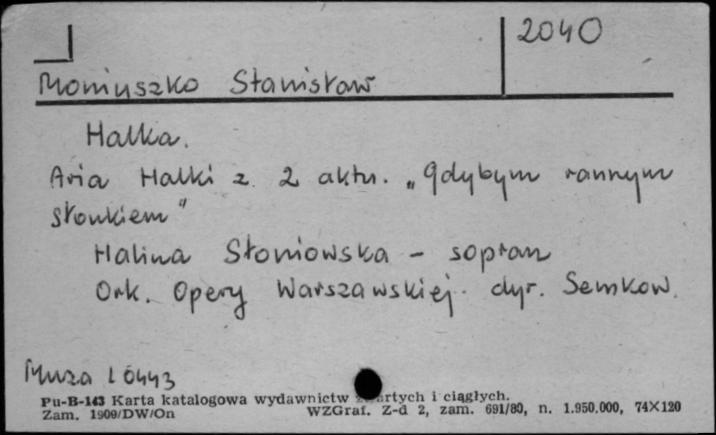 2040
Moniuszko Stanisław
Halka.
Aria Halki z 2 aktu. „Gdybym rannym
słonkiem"
Halina Słoniowska - sopran
Ork. Opery Warszawskiej dyr. Semkow.
Muza L 0443
Pu-B-143 Karta katalogowa wydawnictw zwartych i ciągłych.
Zam. 1909/DW/On WZGraf. Z-d 2, zam. 691/80, n. 1.950.000, 74X120